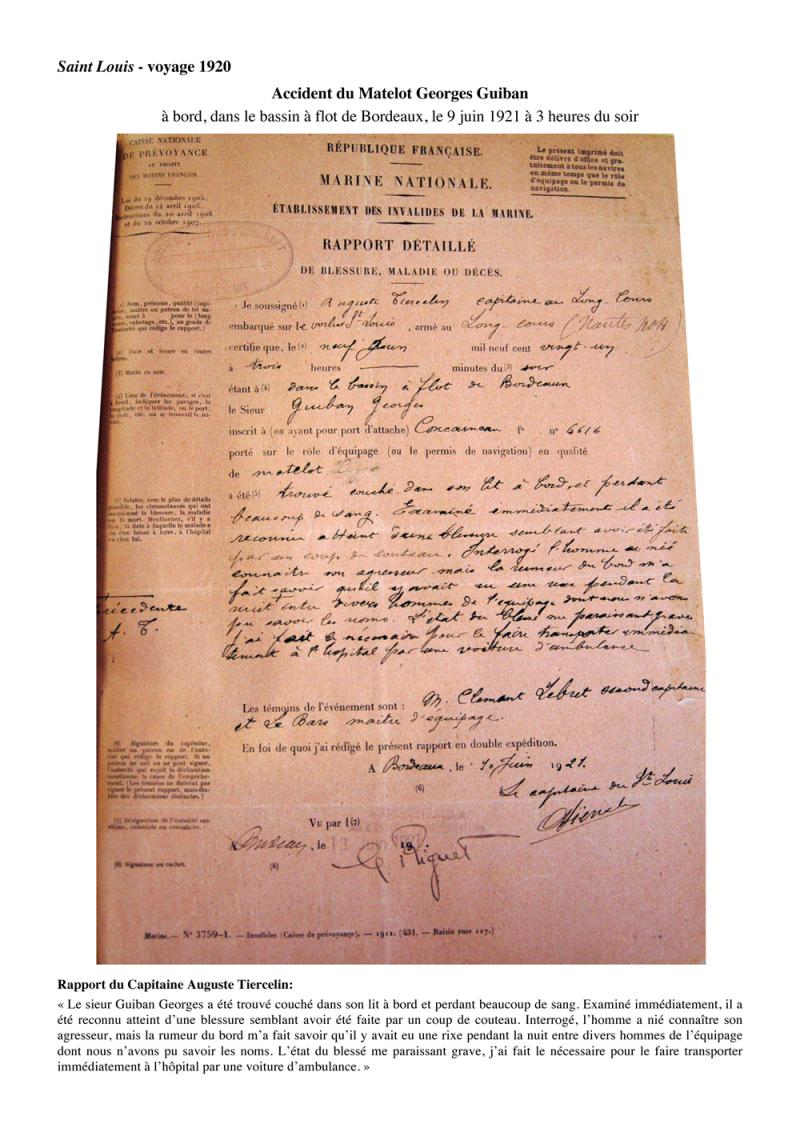 Saint Louis - voyage 1920
Accident du Matelot Georges Guiban
à bord, dans le bassin à flot de Bordeaux, le 9 juin 1921 à 3 heures du soir
CAISSE NATIONALE
DE PRÉVOYANCE
AU PROFIT
DES MARINS FRANÇAIS.
Loi du 29 décembre 1905.
Décret du 14 avril 1906.
Instructions du 20 avril 1906
et du 20 octobre 1907.
RÉPUBLIQUE FRANÇAISE.
MARINE NATIONALE.
ÉTABLISSEMENT DES INVALIDES DE LA MARINE.
Le présent imprimé doit
être délivré d'office et gra-
tuitement à tous les navires
en même temps que le rôle
d'équipage ou le permis de
navigation.
RAPPORT DÉTAILLÉ
DE BLESSURE, MALADIE OU DÉCÈS.
Je soussigné (1) Auguste Tiercelin capitaine au Long Cours
embarqué sur le voilier St Louis, armé au Long-cours (Nantes
certifie que, le (2) neuf Juin mil neuf cent vingt-un
à trois heures minutes du (3) soir
étant à (4) dans le bassin à flot de Bordeaux
le Sieur Guiban Georges
inscrit à (ou ayant pour port d'attache) Concarneau fo nº 6616
porté sur le rôle d'équipage (ou le permis de navigation) en qualité
de matelot
a été (5) trouvé couché dans son lit à bord, et perdant
beaucoup de sang. Examiné immédiatement il a été
reconnu atteint d'une blessure semblant avoir été faite
par un coup de couteau. Interrogé l'homme a nié
connaitre son agresseur mais la rumeur du bord m'a
fait savoir qu'il y avait eu une rixe pendant la
nuit entre divers hommes de l'équipage dont nous n'avons
pu savoir les noms. L'état du blessé me paraissant grave
j'ai fait le nécessaire pour le faire transporter immédia-
tement à l'hopital par une voiture d'ambulance
(1) Nom, prénoms, qualité (capi-
taine, maître ou patron de tel na-
vire, armé à pour le (long
cours, cabotage, etc.), ou grade de
l'autorité qui rédige le rapport.)
(2) Date et heure en toutes
lettres.
(3) Matin ou soir.
(4) Lieu de l'événement; si c'est
à bord, indiquer les parages, la
longitude et la latitude, ou le port,
la rade, etc. où se trouvait le na-
vire.
(5) Relater, avec le plus de détails
possible, les circonstances qui ont
occasionné la blessure, la maladie
ou la mort. Mentionner, s'il y a
lieu, la date à laquelle le malade a
dû être laissé à terre, à l'hôpital
ou chez lui.
précédente
A. T.
Les témoins de l'événement sont : M. Clement Lebret second capitaine
et Le Bars maitre d'équipage.
En foi de quoi j'ai rédigé le présent rapport en double expédition.
A Bordeaux, le 10 Juin 1921.
(6)
Le capitaine du St Louis
(6) Signature du capitaine,
maître ou patron ou de l'auto-
rité qui rédige le rapport. Si un
patron ne sait ou ne peut signer,
l'autorité qui reçoit la déclaration
mentionne la cause de l'empêche-
ment. (Les témoins ne doivent pas
signer le présent rapport, mais éta-
blir des déclarations distinctes.)
(7) Désignation de l'autorité ma-
ritime, coloniale ou consulaire.
(8) Signature ou cachet.
Vu par l (7)
A Bordeaux, le 13 juin 1921 19
(8)
Marine. — Nº 3759-1. — Invalides (Caisse de prévoyance). — 1912. (431. — Raisin rose 117.)
Rapport du Capitaine Auguste Tiercelin:
« Le sieur Guiban Georges a été trouvé couché dans son lit à bord et perdant beaucoup de sang. Examiné immédiatement, il a
été reconnu atteint d'une blessure semblant avoir été faite par un coup de couteau. Interrogé, l'homme a nié connaître son
agresseur, mais la rumeur du bord m'a fait savoir qu'il y avait eu une rixe pendant la nuit entre divers hommes de l'équipage
dont nous n'avons pu savoir les noms. L'état du blessé me paraissant grave, j'ai fait le nécessaire pour le faire transporter
immédiatement à l'hôpital par une voiture d'ambulance. »